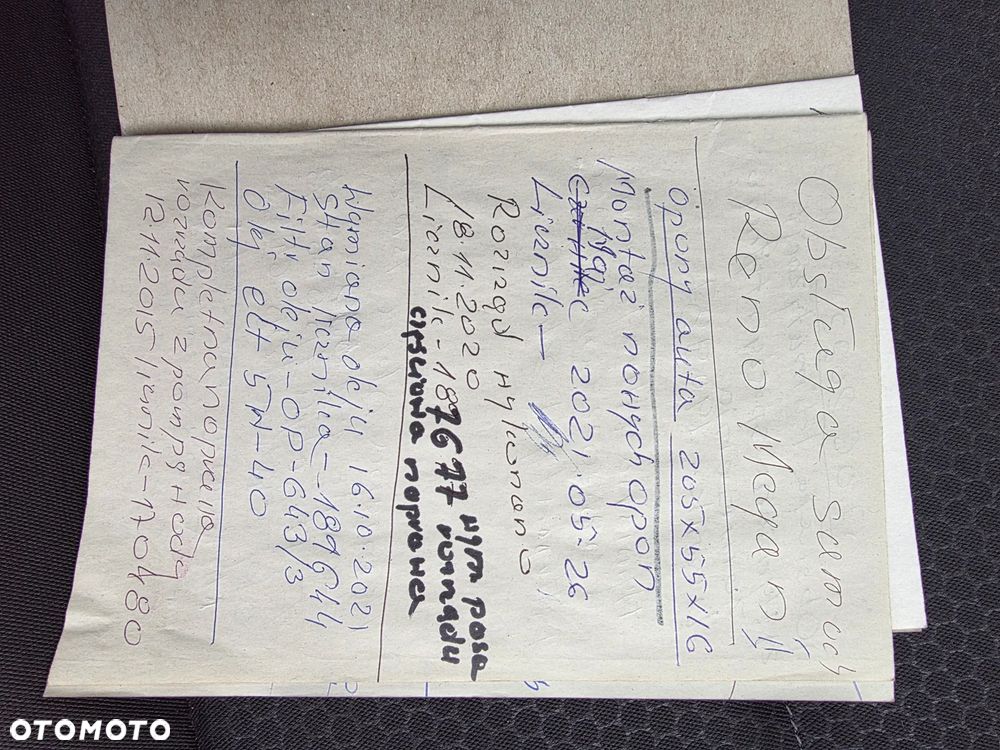 Obsługa samoch
Reno Megan II
opony auta 205x55x16
Montaż nowych opon
Maj 2021.05-26
Licznik —
Rozrząd wykonano
18.11.2020
Licznik-187677 wym paska
rozrządu
właściwa naprawa
Wymiana oleju 16.10.2021
Stan licznika-189644
Filtr oleju-OP-643/3
Olej elf 5W-40
Kompletna naprawa
rozrządu z pompą wodą
12.11.2015 licznik-170480
OTOMOTO